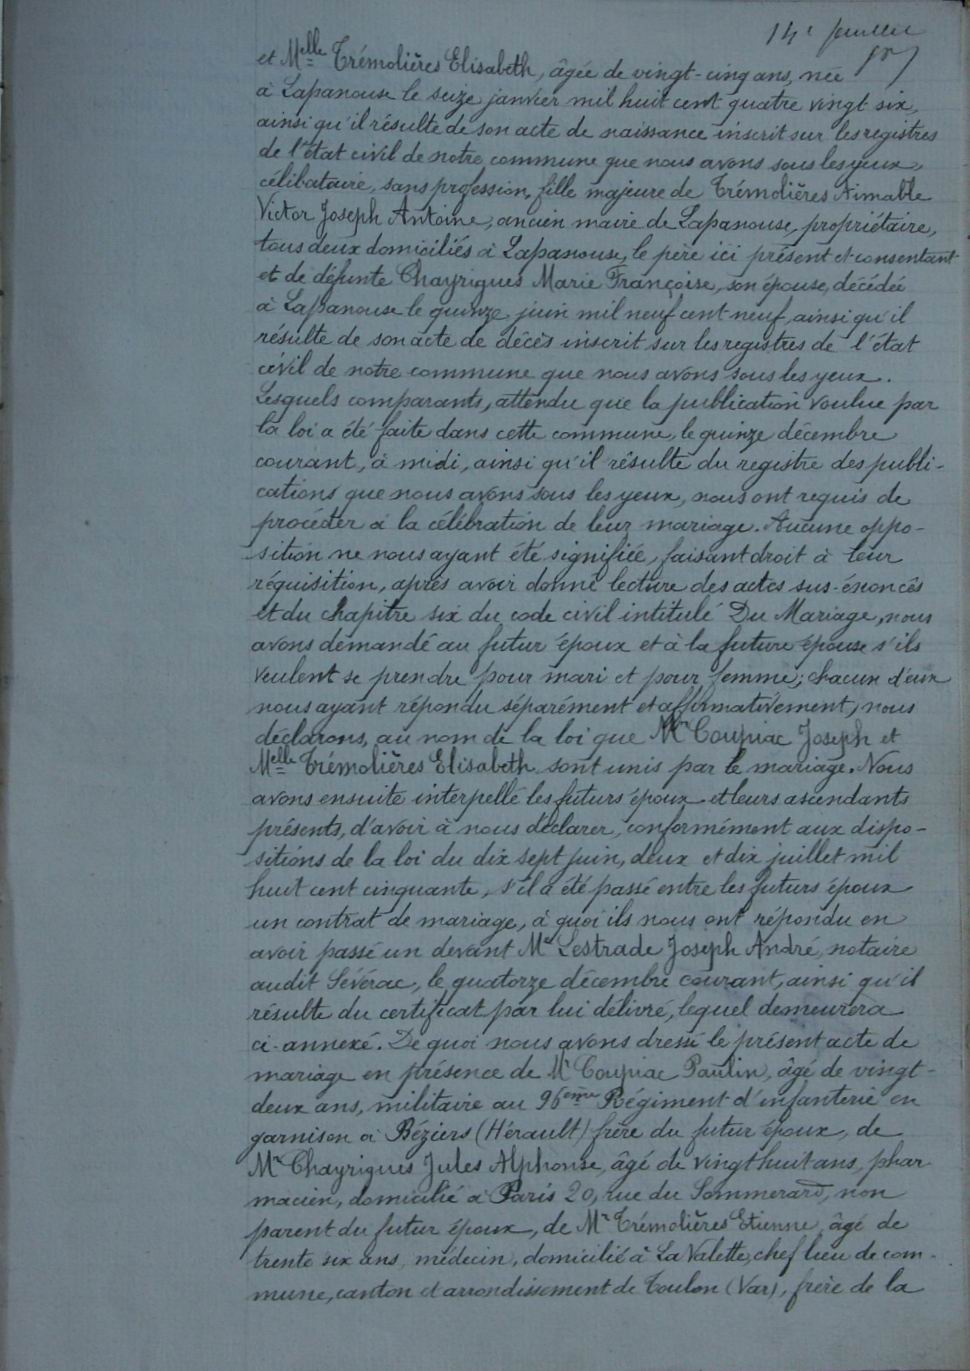 14e feuillet
et Melle Trémolières Elisabeth, âgée de vingt-cinq ans, née
à Lapanouse le seize janvier mil huit cent quatre vingt six,
ainsi qu'il résulte de son acte de naissance inscrit sur les registres
de l'état civil de notre commune que nous avons sous les yeux,
célibataire, sans profession, fille majeure de Trémolières Aimable
Victor Joseph Antoine, ancien maire de Lapanouse, propriétaire,
tous deux domiciliés à Lapanouse, le père ici présent et consentant
et de défunte Chayrigues Marie Françoise, son épouse, décédée
à Lapanouse le quinze juin mil neuf cent neuf, ainsi qu'il
résulte de son acte de décès inscrit sur les registres de l'état
civil de notre commune que nous avons sous les yeux.
Lesquels comparants, attendu que la publication voulue par
la loi a été faite dans cette commune, le quinze décembre
courant, à midi, ainsi qu'il résulte du registre des publi-
cations que nous avons sous les yeux, nous ont requis de
procéder à la célébration de leur mariage. Aucune oppo-
sition ne nous ayant été signifiée, faisant droit à leur
réquisition, après avoir donné lecture des actes sus-énoncés
et du chapitre six du code civil intitulé Du Mariage, nous
avons demandé au futur époux et à la future épouse s'ils
veulent se prendre pour mari et pour femme; chacun d'eux
nous ayant répondu séparément et affirmativement, nous
déclarons, au nom de la loi que Mr Coupiac Joseph et
Melle Trémolières Elisabeth sont unis par le mariage. Nous
avons ensuite interpellé les futurs époux et leurs ascendants
présents, d'avoir à nous déclarer, conformément aux dispo-
sitions de la loi du dix sept juin, deux et dix juillet mil
huit cent cinquante, s'il a été passé entre les futurs époux
un contrat de mariage, à quoi ils nous ont répondu en
avoir passé un devant Me Lestrade Joseph André, notaire
audit Sévérac, le quatorze décembre courant, ainsi qu'il
résulte du certificat par lui délivré, lequel demeurera
ci-annexé. De quoi nous avons dressé le présent acte de
mariage en présence de Mr Coupiac Paulin, âgé de vingt-
deux ans, militaire au 96eme Régiment d'infanterie en
garnison à Béziers (Hérault) frère du futur époux, de
Mr Chayrigues Jules Alphonse, âgé de vingt huit ans, phar
macien, domicilié à Paris 20, rue du Sommerard, non
parent du futur époux, de Mr Trémolières Etienne, âgé de
trente six ans, médecin, domicilié à La Valette, chef lieu de com-
mune, canton et arrondissement de Toulon (Var), frère de la